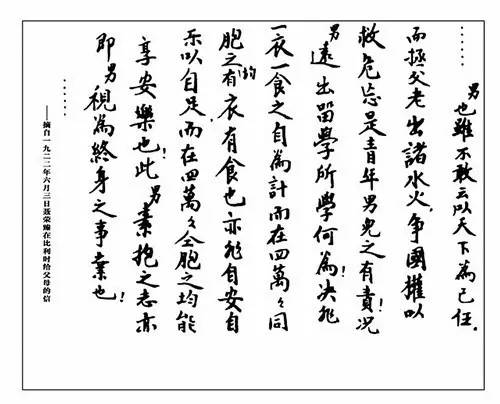 ……
男也雖不敢云以天下為己任,
而拯父老出諸水火,争國權以
救危忘是青年男兒之有責!況
男遠出留學所學何為!决非
一衣一食之自為計而在四萬々同
胞之均有衣有食也亦非自安自
乐以自足而在四萬々仝胞之均能
享安樂也!此男素抱之志亦
即男視為終身之事業也!
……
——摘自一九二二年六月三日聂荣臻在比利时给父母的信